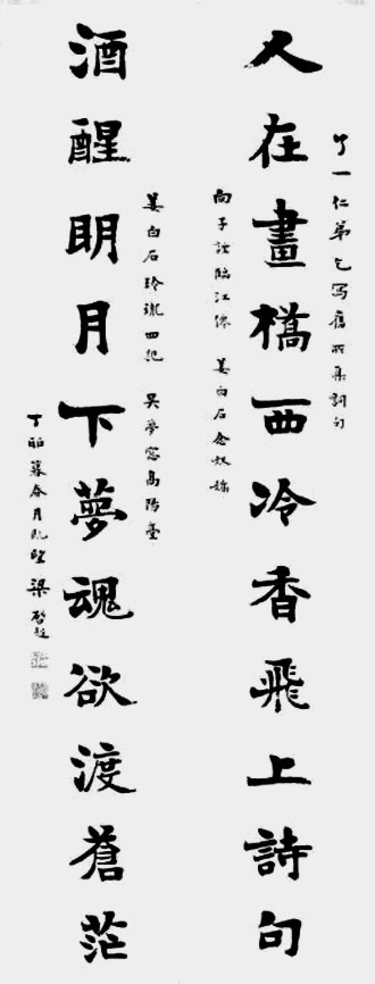 了一仁弟乞寫舊所集詞句
人在畫橋西冷香飛上詩句
向子諲臨江仙　姜白石念奴嬌
姜白石玲瓏四犯　吳夢窗高陽臺
酒醒明月下夢魂欲渡蒼茫
丁卯暮春月既望　梁啓超